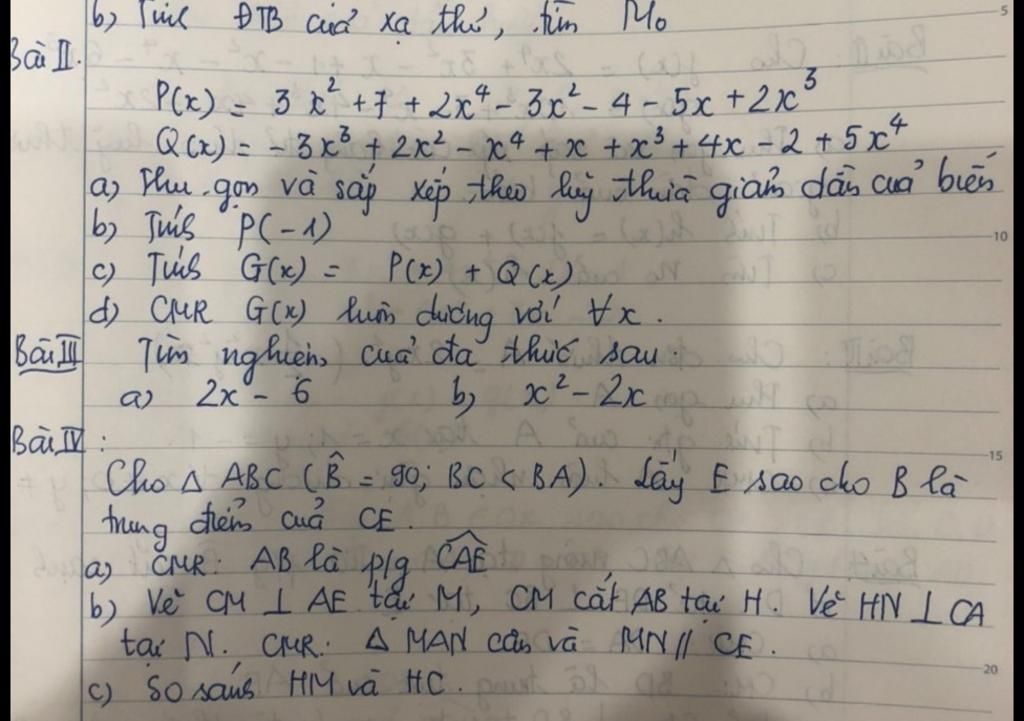 b) Tính ĐTB của xạ thủ, tìm M₀
Bài II.
P(x) = 3x² + 7 + 2x⁴ - 3x² - 4 - 5x + 2x³
Q(x) = -3x³ + 2x² - x⁴ + x + x³ + 4x - 2 + 5x⁴
a) Thu gọn và sắp xếp theo luỹ thừa giảm dần của biến
b) Tính P(-1)
c) Tính G(x) = P(x) + Q(x)
d) CMR G(x) luôn dương với ∀x.
Bài III Tìm nghiệm của đa thức sau:
a) 2x - 6 b) x² - 2x
Bài IV:
Cho △ ABC (B̂ = 90; BC < BA). Lấy E sao cho B là
trung điểm của CE.
a) CMR: AB là p/g CAE
b) Vẽ CM ⊥ AE tại M, CM cắt AB tại H. Vẽ HN ⊥ CA
tại N. CMR: △ MAN cân và MN // CE.
c) So sánh HM và HC.
5
10
15
20